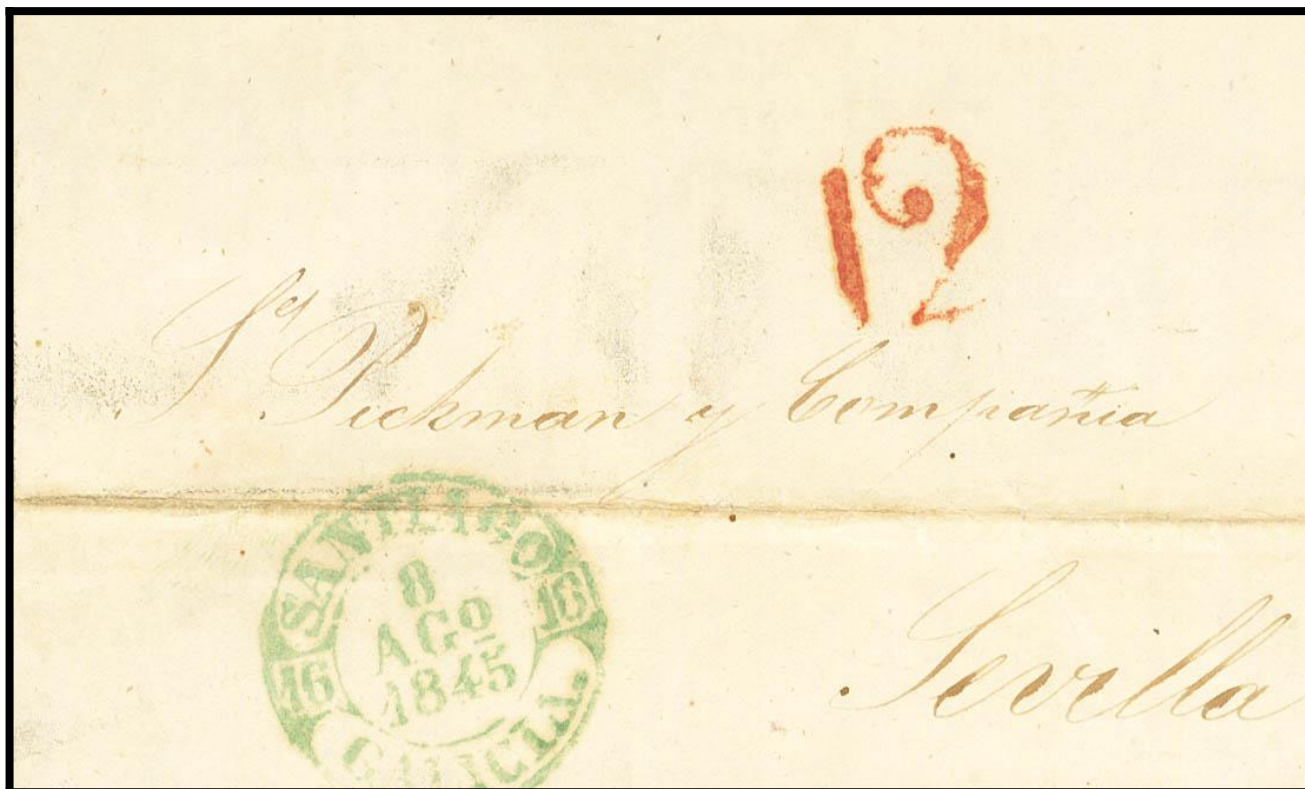 12
Sres Pickman y Compañia
SANTIAGO
16
8
AGo
1845
16
GALICIA.
Sevilla